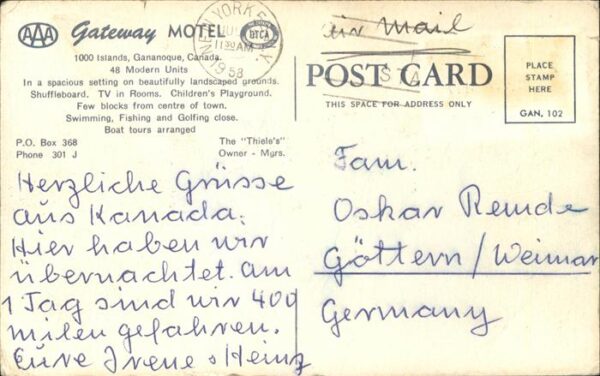 AAA Gateway MOTEL
1000 Islands, Gananoque, Canada.
48 Modern Units
In a spacious setting on beautifully landscaped grounds.
Shuffleboard. TV in Rooms. Children's Playground.
Few blocks from centre of town.
Swimming, Fishing and Golfing close.
Boat tours arranged
P.O. Box 368
Phone 301 J
The "Thiele's"
Owner - Mgrs.
Herzliche Grüsse
aus Kanada.
Hier haben wir
übernachtet. am
1 Tag sind wir 400
milen gefahren.
Eure Irene + Heinz
NEW YORK N.Y.
11 30 AM
1958
air Mail
POST CARD
THIS SPACE FOR ADDRESS ONLY
PLACE
STAMP
HERE
GAN. 102
Fam.
Oskar Remde
Göttern/Weimar
Germany